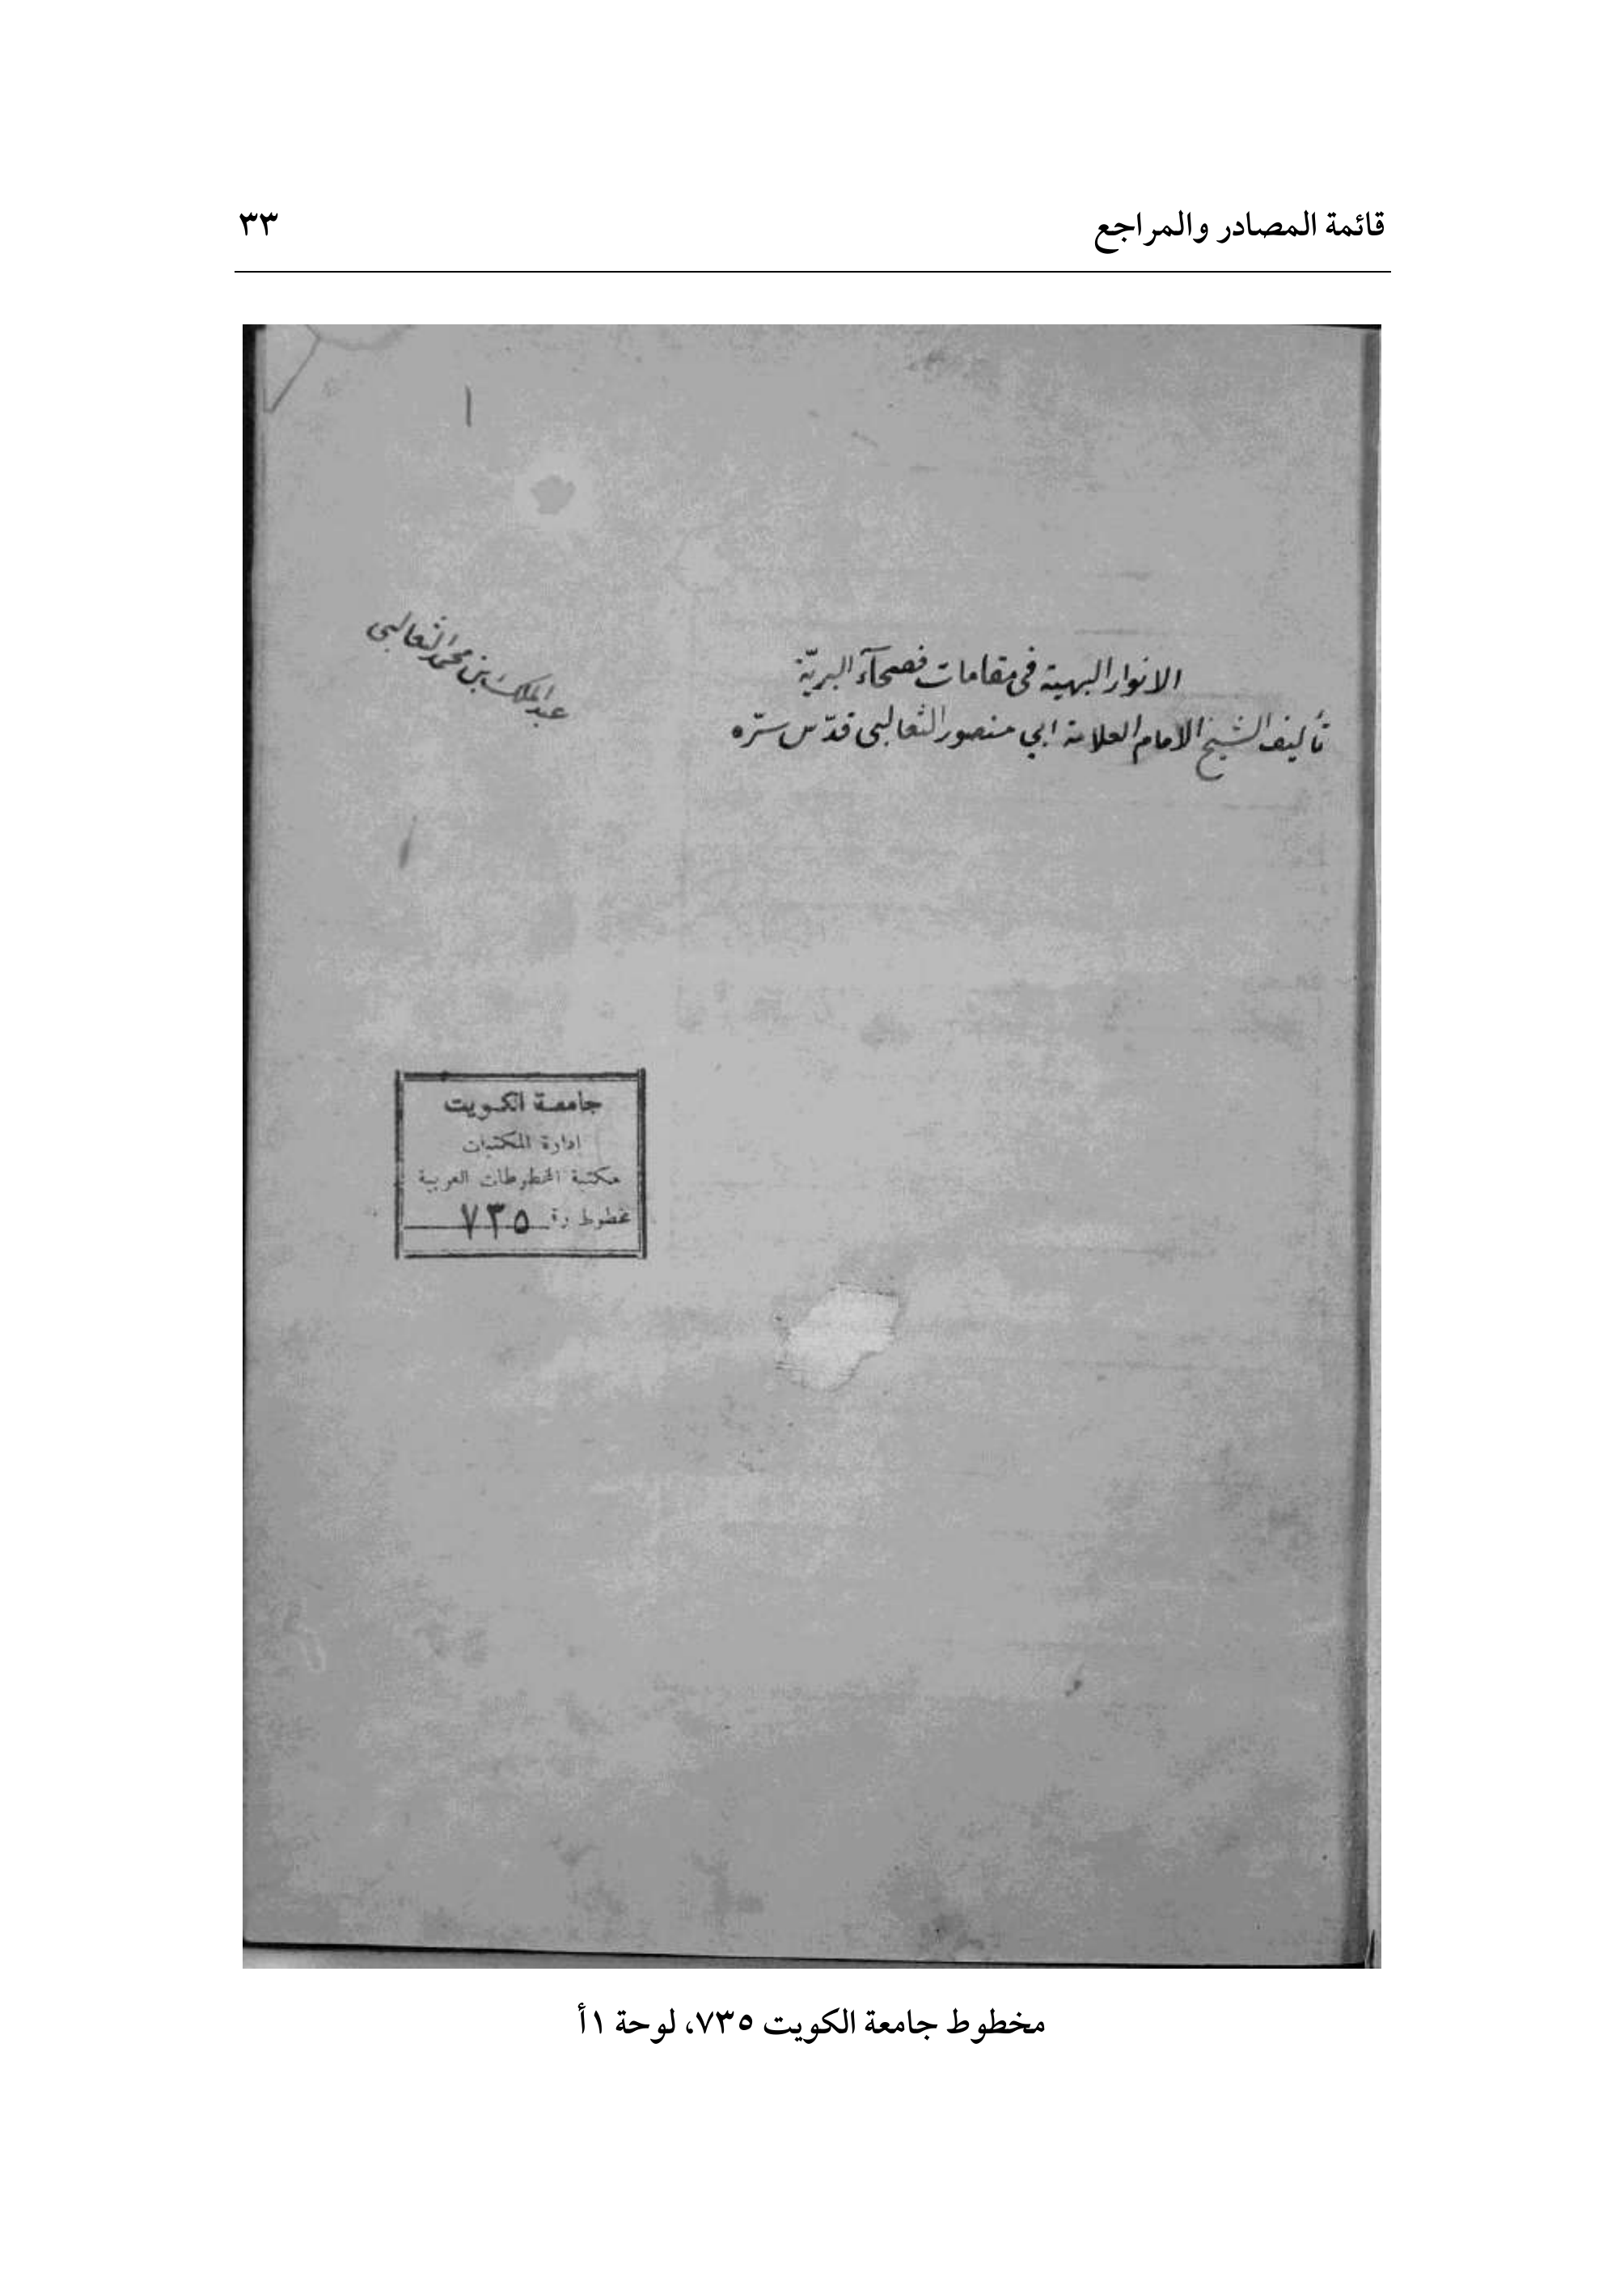 قائمة المصادر والمراجع ٣٣
١
الانوار البهية فى مقامات فصحآء البريّة
تأليف الشيخ الامام العلامة ابي منصور الثعالبى قدّس سرّه
عبد الملك بن محمد الثعالبى
جامعة الكويت
ادارة المكتبات
مكتبة المخطوطات العربية
مخطوط رقم ٧٣٥
مخطوط جامعة الكويت ٧٣٥، لوحة ١أ